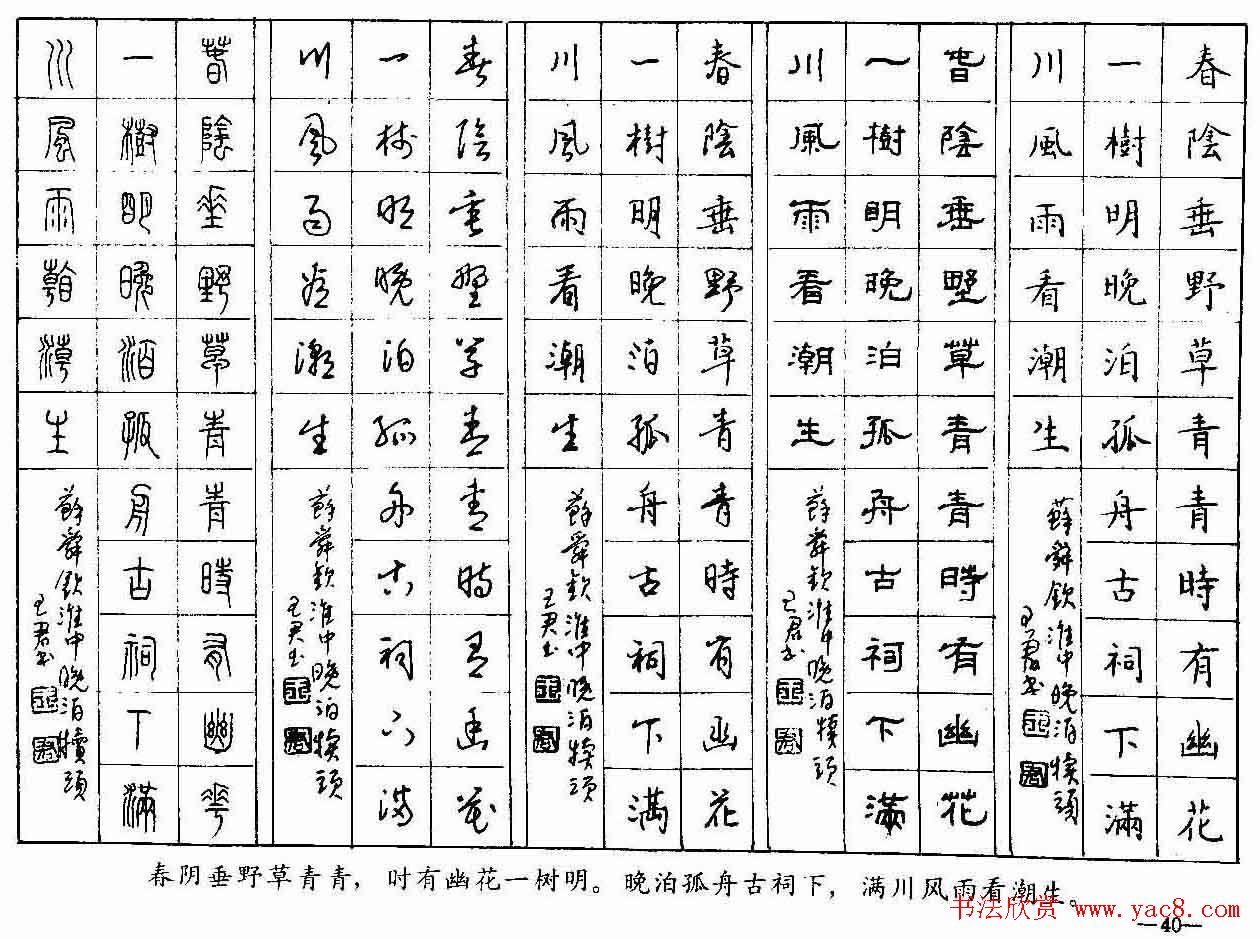 春陰垂野草青青時有幽花
一樹明晚泊孤舟古祠下滿
川風雨看潮生
蘇舜欽淮中晚泊犢頭
王君書
春陰垂野草青青時有幽花
一樹明晚泊孤舟古祠下滿
川風雨看潮生
蘇舜欽淮中晚泊犢頭
王君書
春陰垂野草青青時有幽花
一樹明晚泊孤舟古祠下滿
川風雨看潮生
蘇舜欽淮中晚泊犢頭
王君書
春陰垂野草青青時有幽花
一樹明晚泊孤舟古祠下滿
川風雨看潮生
蘇舜欽淮中晚泊犢頭
王君書
春陰垂野草青青時有幽花
一樹明晚泊孤舟古祠下滿
川風雨看潮生
蘇舜欽淮中晚泊犢頭
王君書
春阴垂野草青青，时有幽花一树明。晚泊孤舟古祠下，满川风雨看潮生。
书法欣赏 www.yac8.com
—40—